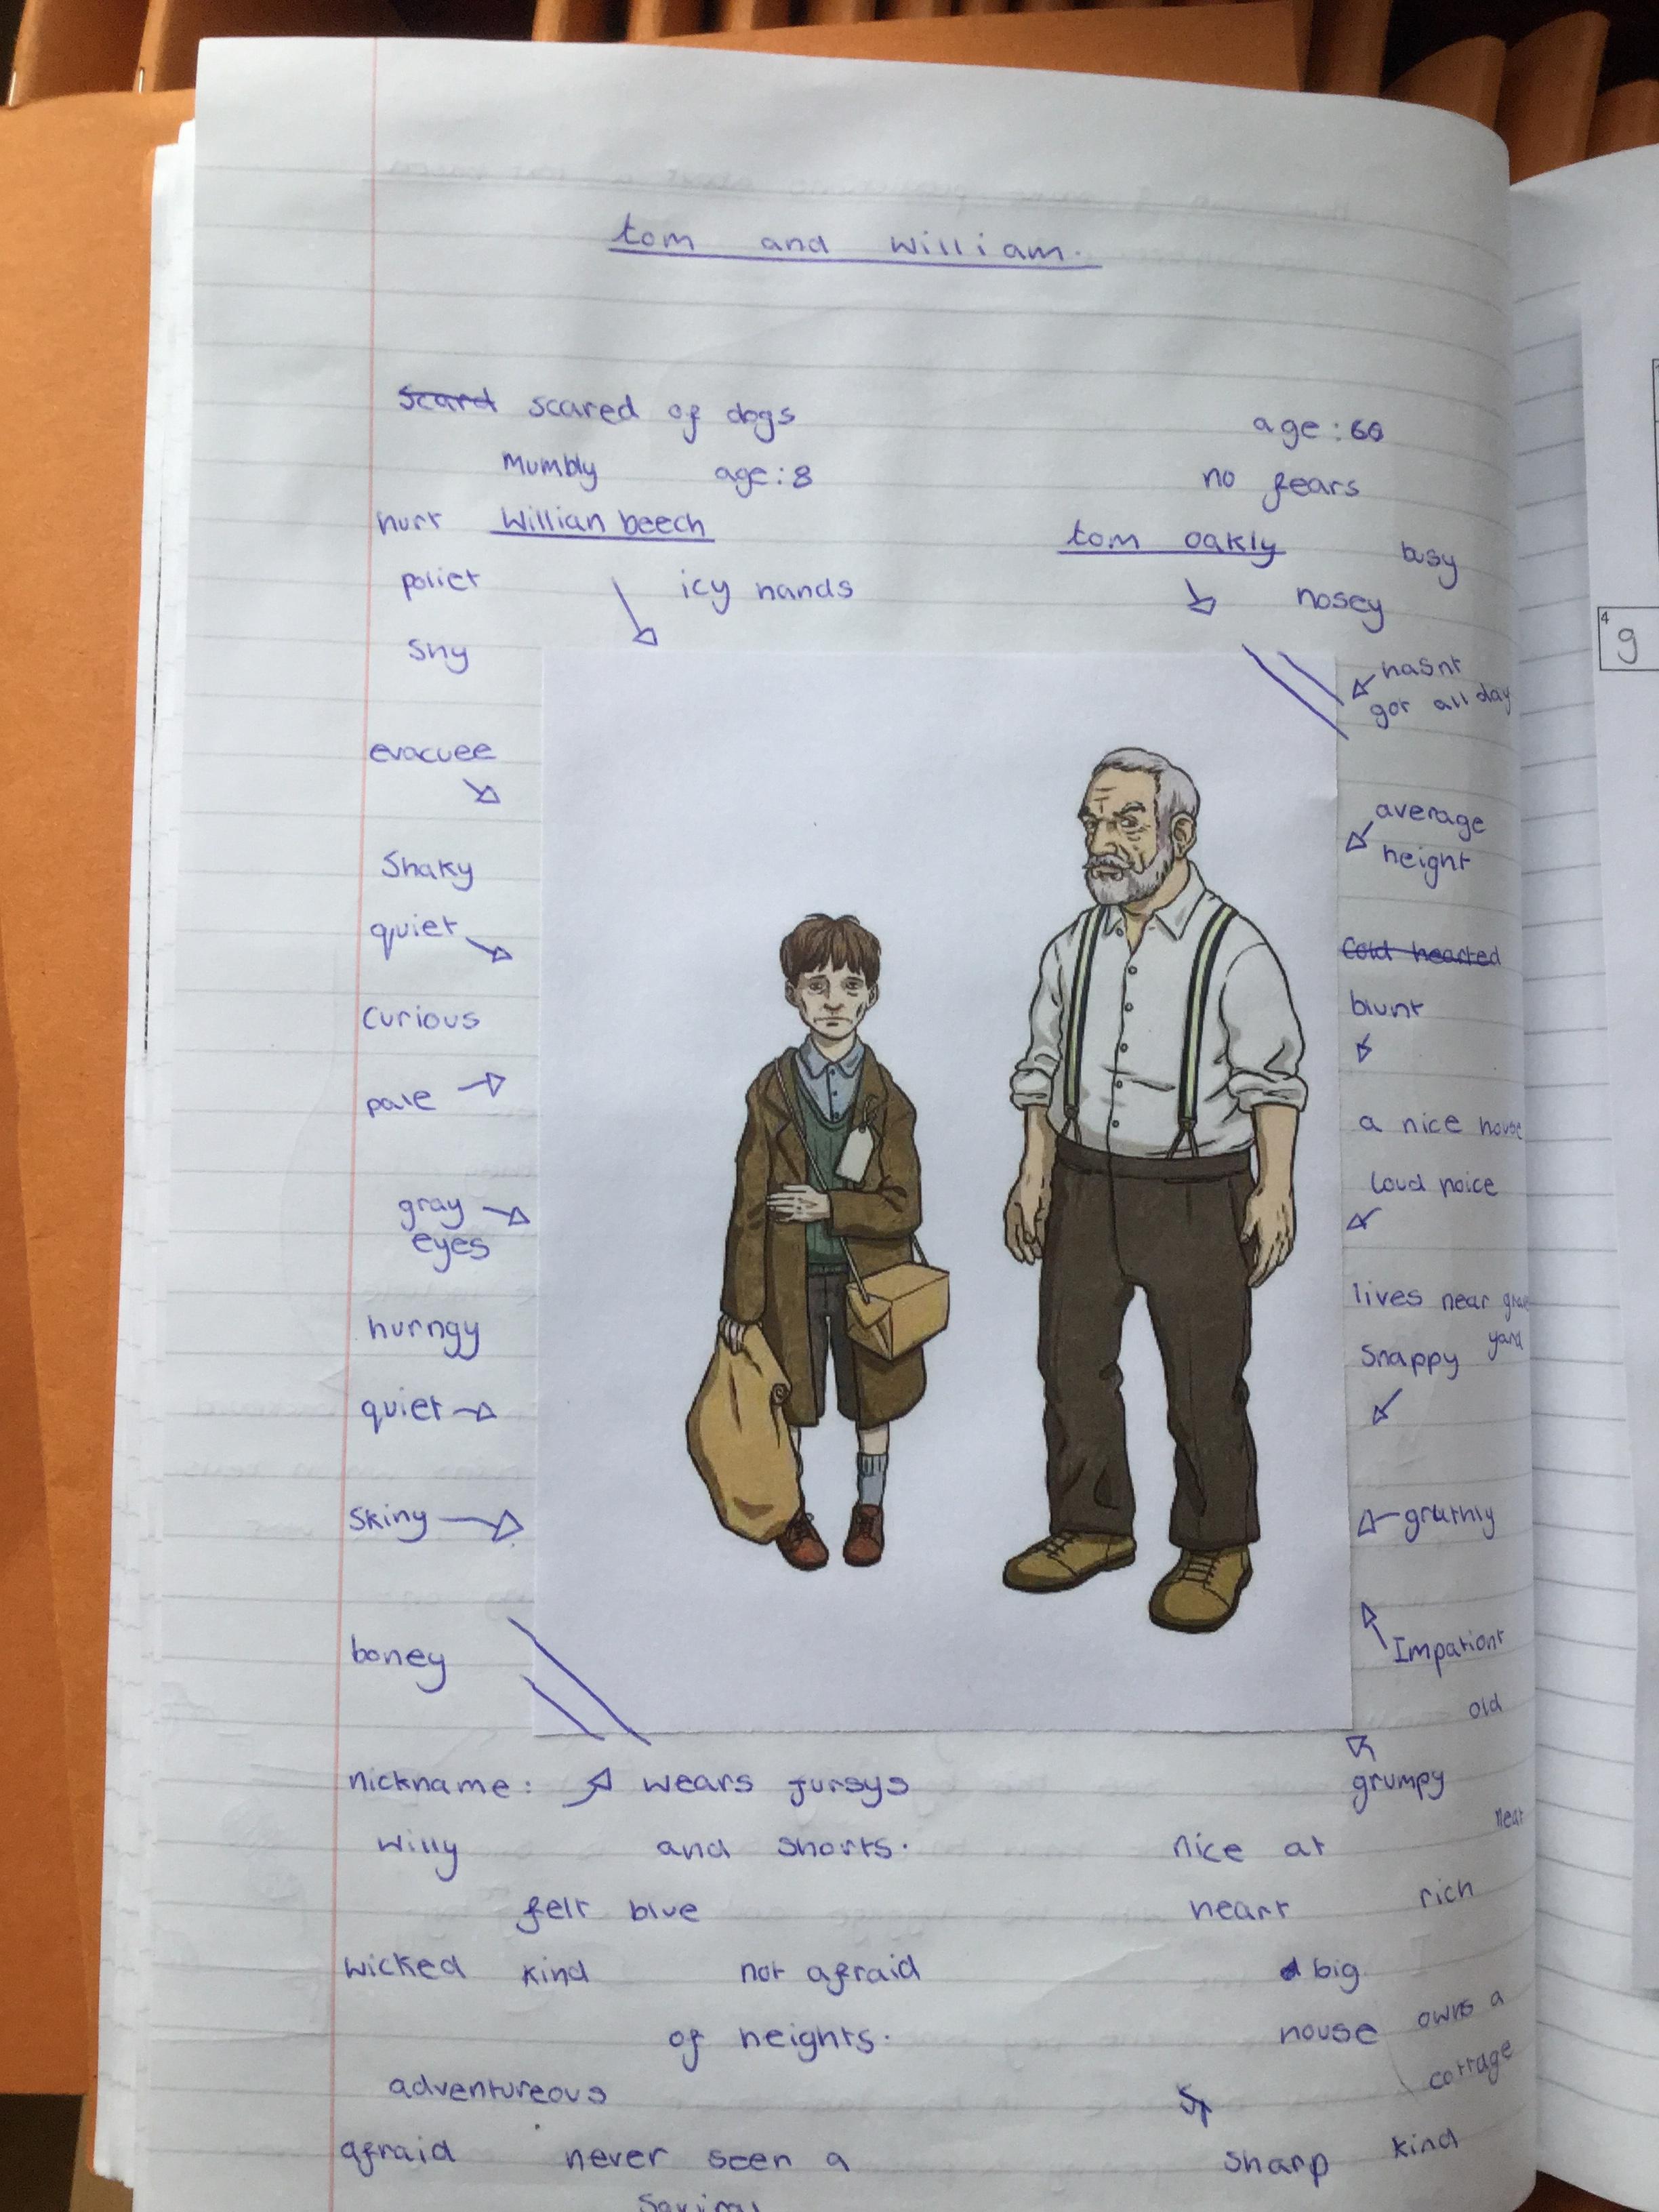 tom and william.
scard scared of dogs
age: 60
Mumbly age: 8
no fears
hurt Willian beech
tom oakly
busy
poliet
icy hands
nosey
shy
hasnt
got all day
evacuee
average
height
Shaky
quiet
Cold hearted
blunt
curious
pale
a nice house
loud noice
gray
eyes
lives near grave
yard
hurngy
Snappy
quiet
Skiny
gruthly
boney
Impationt
old
nickname:
wears jursys
grumpy
willy
and shorts.
nice at
neat
felt blue
heart
rich
wicked kind not afraid
big
of heights.
house
owns a
cottage
adventureous
afraid never seen a
sharp
kind
4
g